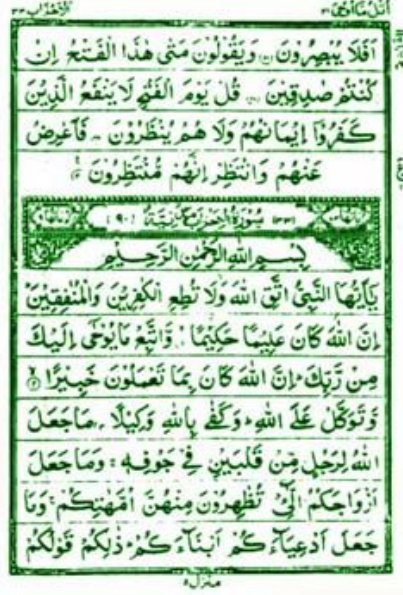 اتل ما اوحی ۲۱ الاحزاب ۳۳
اَفَلَا يُبْصِرُوْنَ وَيَقُوْلُوْنَ مَتٰى هٰذَا الْفَتْحُ اِنْ
كُنْتُمْ صٰدِقِيْنَ قُلْ يَوْمَ الْفَتْحِ لَا يَنْفَعُ الَّذِيْنَ
كَفَرُوْٓا اِيْمَانُهُمْ وَلَا هُمْ يُنْظَرُوْنَ فَاَعْرِضْ
عَنْهُمْ وَانْتَظِرْ اِنَّهُمْ مُّنْتَظِرُوْنَ
سُوْرَةُ الْاَحْزَابِ مَدَنِيَّةٌ (٩٠)
بِسْمِ اللّٰهِ الرَّحْمٰنِ الرَّحِيْمِ
يٰٓاَيُّهَا النَّبِيُّ اتَّقِ اللّٰهَ وَلَا تُطِعِ الْكٰفِرِيْنَ وَالْمُنٰفِقِيْنَ
اِنَّ اللّٰهَ كَانَ عَلِيْمًا حَكِيْمًا وَّاتَّبِعْ مَا يُوْحٰٓى اِلَيْكَ
مِنْ رَّبِّكَ اِنَّ اللّٰهَ كَانَ بِمَا تَعْمَلُوْنَ خَبِيْرًا
وَّتَوَكَّلْ عَلَى اللّٰهِ وَكَفٰى بِاللّٰهِ وَكِيْلًا مَا جَعَلَ
اللّٰهُ لِرَجُلٍ مِّنْ قَلْبَيْنِ فِيْ جَوْفِهٖ وَمَا جَعَلَ
اَزْوَاجَكُمُ الّٰٓـِٔيْ تُظٰهِرُوْنَ مِنْهُنَّ اُمَّهٰتِكُمْ وَمَا
جَعَلَ اَدْعِيَآءَكُمْ اَبْنَآءَكُمْ ذٰلِكُمْ قَوْلُكُمْ
منزل ۵